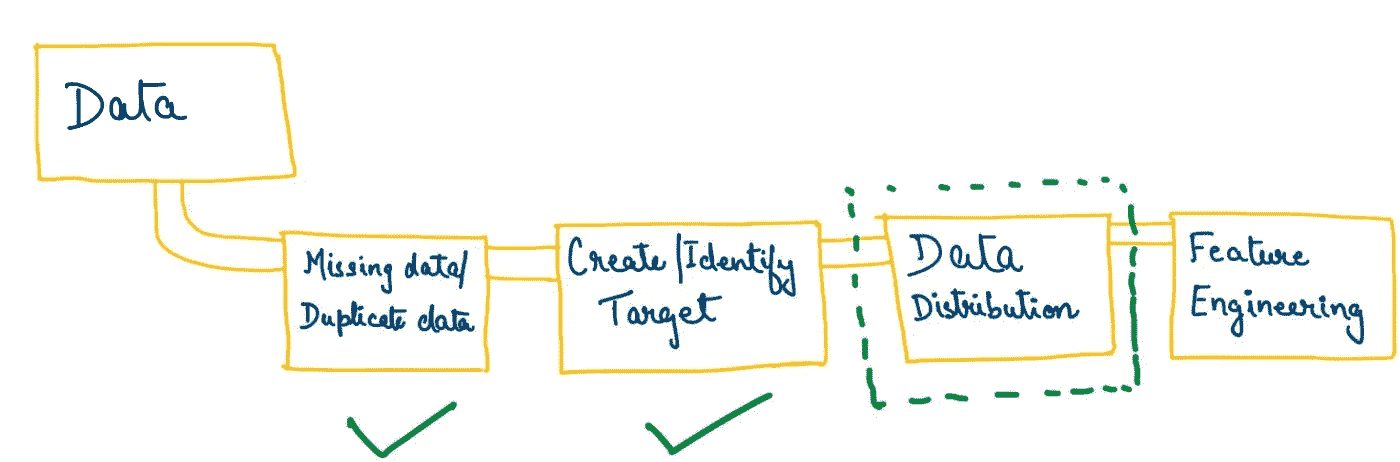 Data
Missing data/
Duplicate data
Create/Identify
Target
Data
Distribution
Feature
Engineering